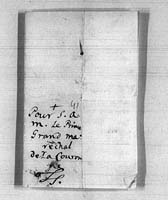 +
Pour S. A
m. Le Prin
Grand ma
réchal
de la Couron